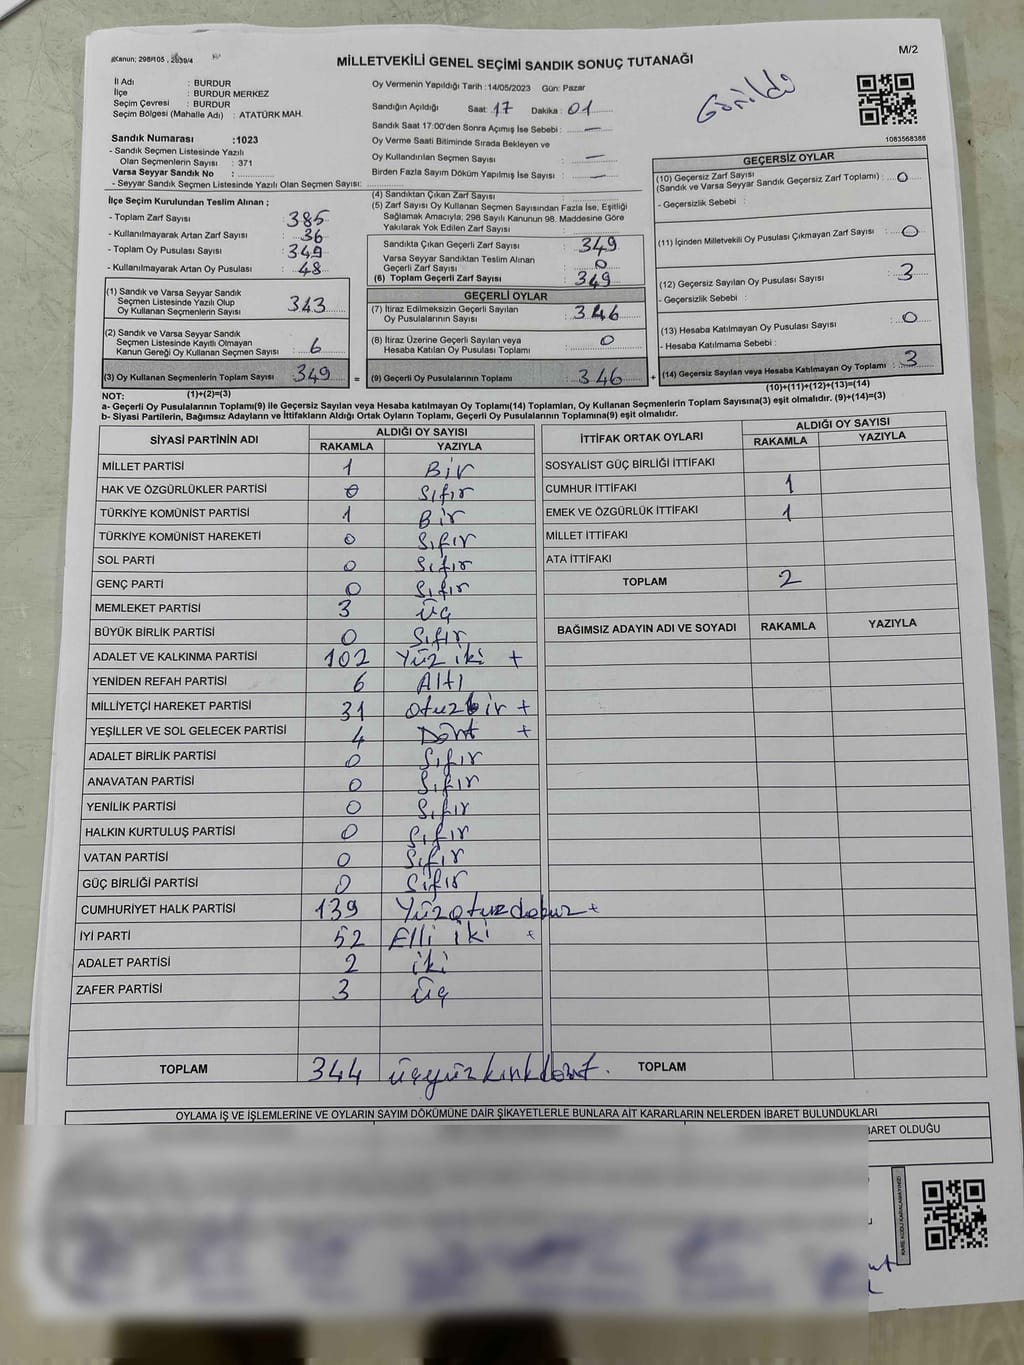 Kanun; 298/105
M/2
MİLLETVEKİLİ GENEL SEÇİMİ SANDIK SONUÇ TUTANAĞI
Görüldü
1083568388
İl Adı : BURDUR
İlçe : BURDUR MERKEZ
Seçim Çevresi : BURDUR
Seçim Bölgesi (Mahalle Adı) : ATATÜRK MAH.
Sandık Numarası :1023
- Sandık Seçmen Listesinde Yazılı
Olan Seçmenlerin Sayısı : 371
Varsa Seyyar Sandık No :
- Seyyar Sandık Seçmen Listesinde Yazılı Olan Seçmen Sayısı:
İlçe Seçim Kurulundan Teslim Alınan ;
- Toplam Zarf Sayısı : 385
- Kullanılmayarak Artan Zarf Sayısı : 36
- Toplam Oy Pusulası Sayısı : 349
- Kullanılmayarak Artan Oy Pusulası : 48
(1) Sandık ve Varsa Seyyar Sandık
Seçmen Listesinde Yazılı Olup
Oy Kullanan Seçmenlerin Sayısı : 343
(2) Sandık ve Varsa Seyyar Sandık
Seçmen Listesinde Kayıtlı Olmayan
Kanun Gereği Oy Kullanan Seçmen Sayısı : 6
(3) Oy Kullanan Seçmenlerin Toplam Sayısı : 349 =
(1)+(2)=(3)
Oy Vermenin Yapıldığı Tarih :14/05/2023 Gün: Pazar
Sandığın Açıldığı Saat: 17 Dakika : 01
Sandık Saat 17:00'den Sonra Açımış İse Sebebi : —
Oy Verme Saati Bitiminde Sırada Bekleyen ve
Oy Kullandırılan Seçmen Sayısı : —
Birden Fazla Sayım Döküm Yapılmış İse Sayısı : —
(4) Sandıktan Çıkan Zarf Sayısı :
(5) Zarf Sayısı Oy Kullanan Seçmen Sayısından Fazla İse, Eşitliği
Sağlamak Amacıyla; 298 Sayılı Kanunun 98. Maddesine Göre
Yakılarak Yok Edilen Zarf Sayısı :
Sandıkta Çıkan Geçerli Zarf Sayısı : 349
Varsa Seyyar Sandıktan Teslim Alınan
Geçerli Zarf Sayısı : 0
(6) Toplam Geçerli Zarf Sayısı : 349
GEÇERLİ OYLAR
(7) İtiraz Edilmeksizin Geçerli Sayılan
Oy Pusulalarının Sayısı : 346
(8) İtiraz Üzerine Geçerli Sayılan veya
Hesaba Katılan Oy Pusulası Toplamı : 0
(9) Geçerli Oy Pusulalarının Toplamı : 346 +
GEÇERSİZ OYLAR
(10) Geçersiz Zarf Sayısı
(Sandık ve Varsa Seyyar Sandık Geçersiz Zarf Toplamı) : 0
- Geçersizlik Sebebi :
(11) İçinden Milletvekili Oy Pusulası Çıkmayan Zarf Sayısı : 0
(12) Geçersiz Sayılan Oy Pusulası Sayısı : 3
- Geçersizlik Sebebi :
(13) Hesaba Katılmayan Oy Pusulası Sayısı : 0
- Hesaba Katılmama Sebebi :
(14) Geçersiz Sayılan veya Hesaba Katılmayan Oy Toplamı : 3
(10)+(11)+(12)+(13)=(14)
NOT:
a- Geçerli Oy Pusulalarının Toplamı(9) ile Geçersiz Sayılan veya Hesaba katılmayan Oy Toplamı(14) Toplamları, Oy Kullanan Seçmenlerin Toplam Sayısına(3) eşit olmalıdır. (9)+(14)=(3)
b- Siyasi Partilerin, Bağımsız Adayların ve İttifakların Aldığı Ortak Oyların Toplamı, Geçerli Oy Pusulalarının Toplamına(9) eşit olmalıdır.
SİYASİ PARTİNİN ADI ALDIĞI OY SAYISI
RAKAMLA YAZIYLA
MİLLET PARTİSİ 1 Bir
HAK VE ÖZGÜRLÜKLER PARTİSİ 0 Sıfır
TÜRKİYE KOMÜNİST PARTİSİ 1 Bir
TÜRKİYE KOMÜNİST HAREKETİ 0 Sıfır
SOL PARTİ 0 Sıfır
GENÇ PARTİ 0 Sıfır
MEMLEKET PARTİSİ 3 üç
BÜYÜK BİRLİK PARTİSİ 0 Sıfır
ADALET VE KALKINMA PARTİSİ 102 Yüz iki +
YENİDEN REFAH PARTİSİ 6 Altı
MİLLİYETÇİ HAREKET PARTİSİ 31 otuzbir +
YEŞİLLER VE SOL GELECEK PARTİSİ 4 Dört +
ADALET BİRLİK PARTİSİ 0 Sıfır
ANAVATAN PARTİSİ 0 Sıfır
YENİLİK PARTİSİ 0 Sıfır
HALKIN KURTULUŞ PARTİSİ 0 Sıfır
VATAN PARTİSİ 0 Sıfır
GÜÇ BİRLİĞİ PARTİSİ 0 Sıfır
CUMHURİYET HALK PARTİSİ 139 Yüzotuzdokuz +
İYİ PARTİ 52 Elli iki +
ADALET PARTİSİ 2 iki
ZAFER PARTİSİ 3 üç
TOPLAM 344 üçyüzkırkdört.
İTTİFAK ORTAK OYLARI ALDIĞI OY SAYISI
RAKAMLA YAZIYLA
SOSYALİST GÜÇ BİRLİĞİ İTTİFAKI
CUMHUR İTTİFAKI 1
EMEK VE ÖZGÜRLÜK İTTİFAKI 1
MİLLET İTTİFAKI
ATA İTTİFAKI
TOPLAM 2
BAĞIMSIZ ADAYIN ADI VE SOYADI RAKAMLA YAZIYLA
TOPLAM
OYLAMA İŞ VE İŞLEMLERİNE VE OYLARIN SAYIM DÖKÜMÜNE DAİR ŞİKAYETLERLE BUNLARA AİT KARARLARIN NELERDEN İBARET BULUNDUKLARI
BARET OLDUĞU
KARE KODU KARALAMAYINIZ!